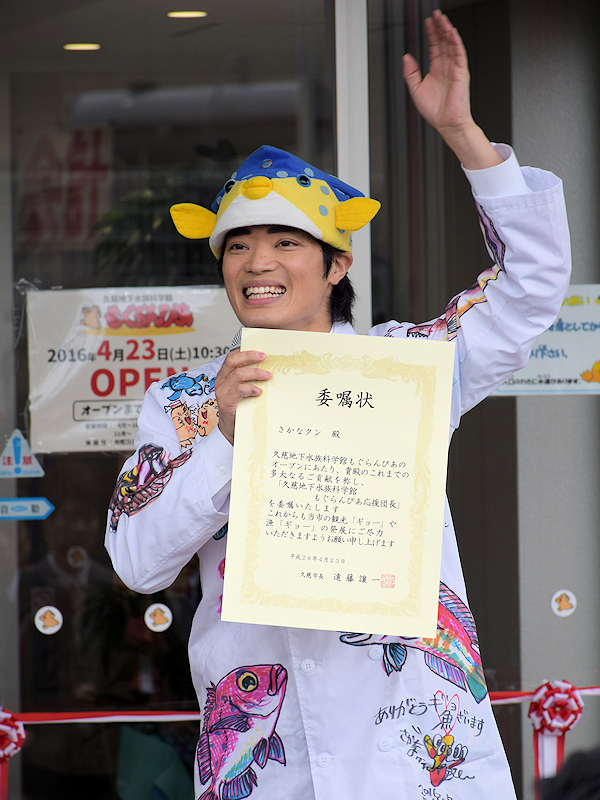 久慈地下水族科学館
もぐらんぴあ
2016年4月23日(土)10:30
OPEN
オープンまで
注意
自動
委嘱状
さかなクン 殿
久慈地下水族科学館もぐらんぴあの
オープンにあたり、貴殿のこれまでの
多大なるご貢献を称し、
「久慈地下水族科学館
もぐらんぴあ応援団長」
を委嘱いたします
これからも当市の観光「ギョー」や
漁「ギョー」の発展にご尽力
いただきますようお願い申し上げます
平成28年4月23日
久慈市長 遠藤譲一
ありがとうギョざいます